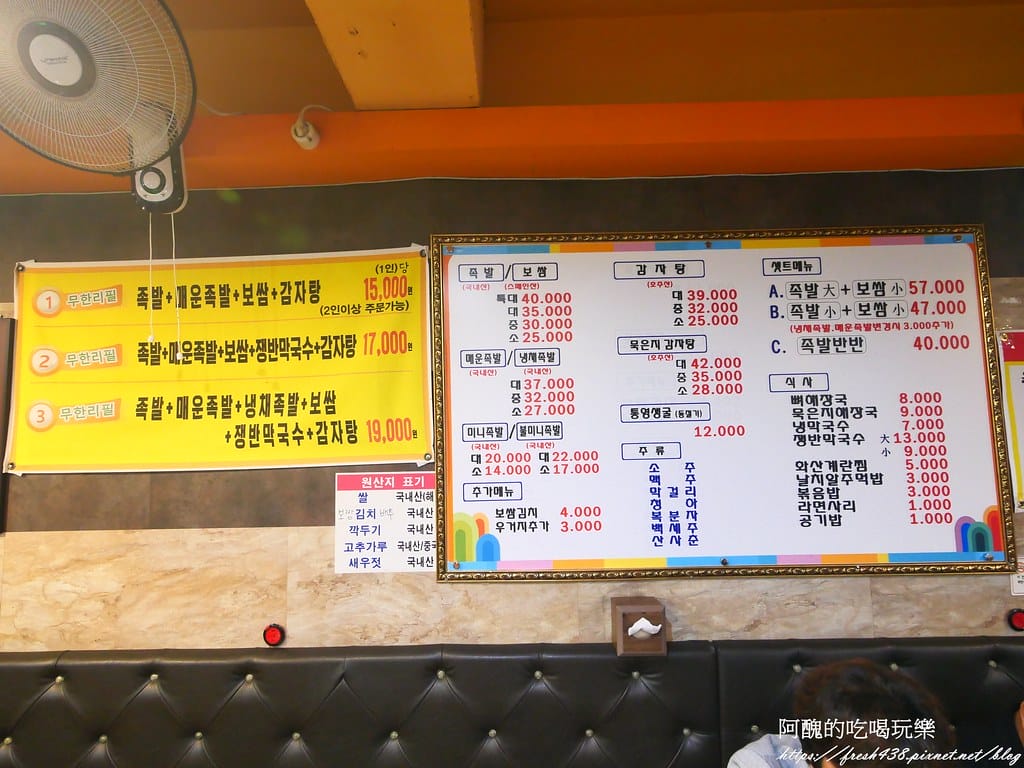 (1인)당
1 무한리필 족발+매운족발+보쌈+감자탕 15,000원
(2인이상 주문가능)
2 무한리필 족발+매운족발+보쌈+쟁반막국수+감자탕 17,000원
3 무한리필 족발+매운족발+냉채족발+보쌈
+쟁반막국수+감자탕 19,000원
원산지 표기
쌀 국내산(해
보쌈김치 배추 국내산
깍두기 국내산
고추가루 국내산/중국
새우젓 국내산
족발/보쌈
(국내산) (스페인산)
특대 40.000
대 35.000
중 30.000
소 25.000
매운족발/냉채족발
(국내산) (국내산)
대 37.000
중 32.000
소 27.000
미니족발/불미니족발
(국내산) (국내산)
대 20.000 대 22.000
소 14.000 소 17.000
추가메뉴
보쌈김치 4.000
우거지추가 3.000
감자탕
(호주산)
대 39.000
중 32.000
소 25.000
묵은지감자탕
(호주산)
대 42.000
중 35.000
소 28.000
통영생굴(동절기)
12.000
주류
소주
맥주
막걸리
청아
복분자
백세주
산사춘
셋트메뉴
A. 족발 大 + 보쌈 小 57.000
B. 족발 小 + 보쌈 小 47.000
(냉채족발.매운족발변경시 3.000추가)
C. 족발반반 40.000
식사
뼈해장국 8.000
묵은지해장국 9.000
냉막국수 7.000
쟁반막국수 大 13.000
小 9.000
화산계란찜 5.000
날치알주먹밥 3.000
볶음밥 3.000
라면사리 1.000
공기밥 1.000
阿醜的吃喝玩樂
https://fresh438.pixnet.net/blog